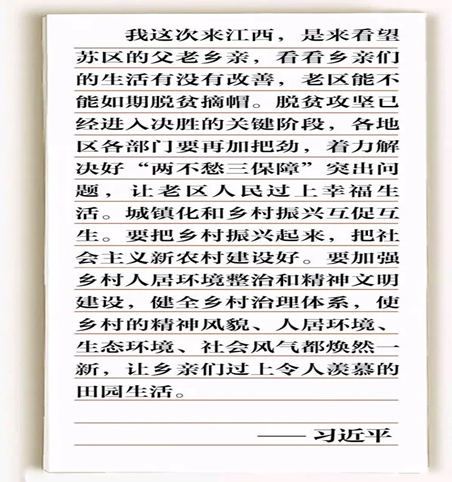 我这次来江西，是来看望
苏区的父老乡亲，看看乡亲们
的生活有没有改善，老区能不
能如期脱贫摘帽。脱贫攻坚已
经进入决胜的关键阶段，各地
区各部门要再加把劲，着力解
决好“两不愁三保障”突出问
题，让老区人民过上幸福生
活。城镇化和乡村振兴互促互
生。要把乡村振兴起来，把社
会主义新农村建设好。要加强
乡村人居环境整治和精神文明
建设，健全乡村治理体系，使
乡村的精神风貌、人居环境、
生态环境、社会风气都焕然一
新，让乡亲们过上令人羡慕的
田园生活。
—— 习近平